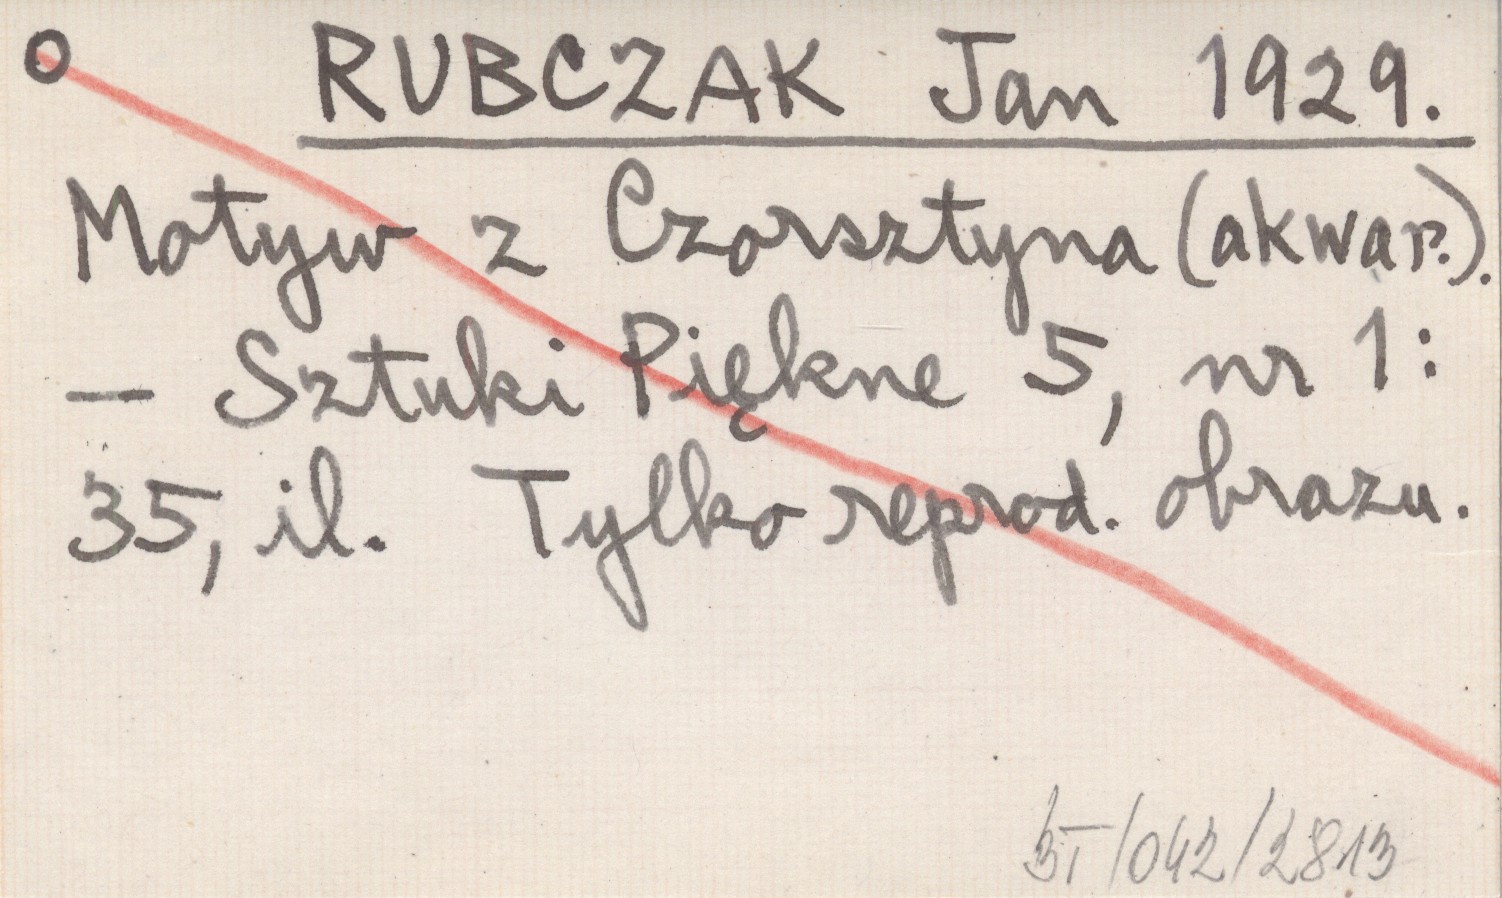 O RUBCZAK Jan 1929.
Motyw z Czorsztyna (akwar.).
— Sztuki Piękne 5, nr 1:
35, il. Tylko reprod. obrazu.
BT/042/2813